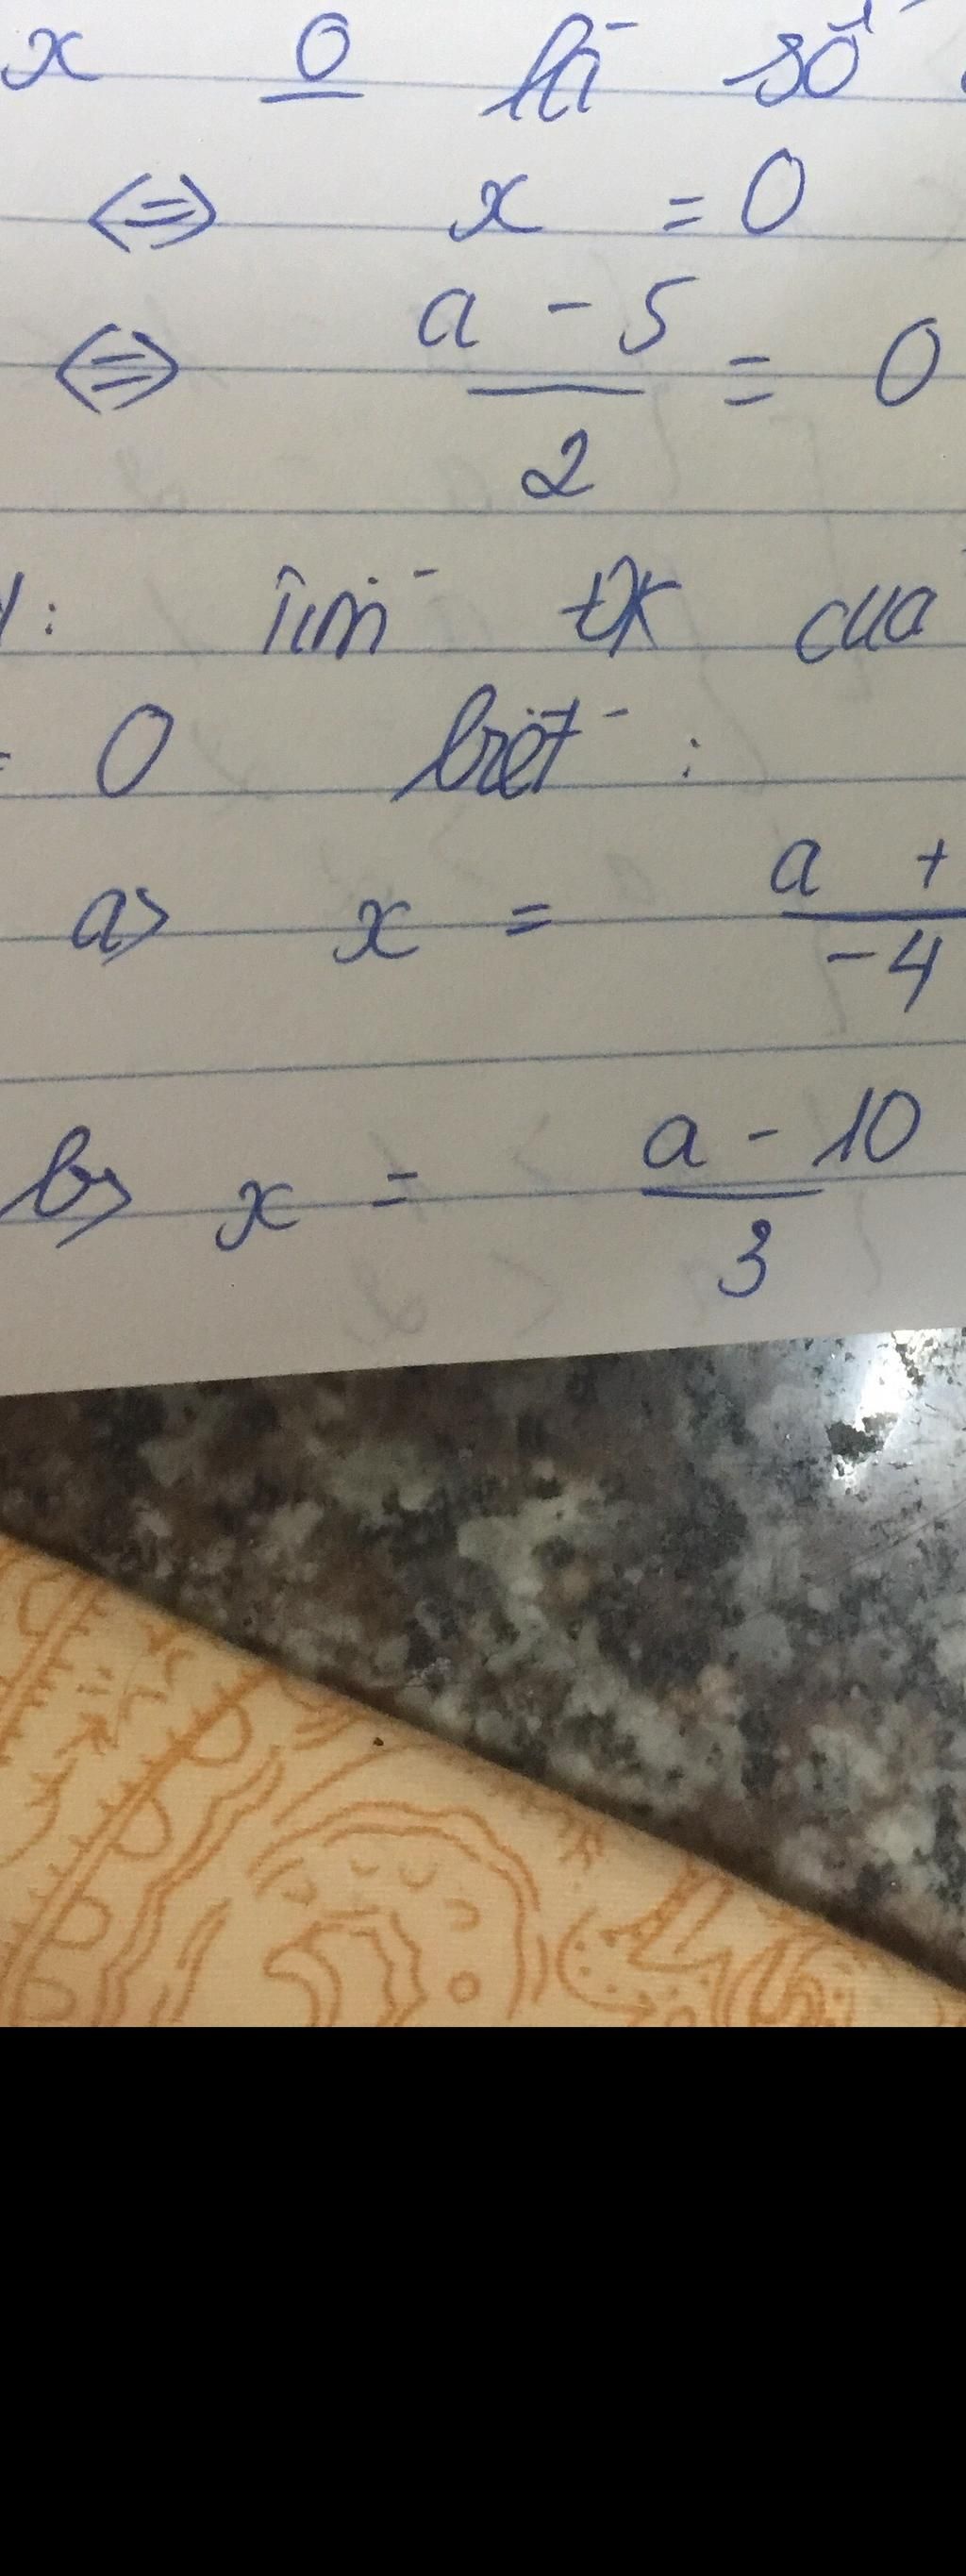 x 0 là số
⇔ x = 0
⇔ a - 5 / 2 = 0
: Tìm đk của
= 0 biết :
a> x = a + / -4
b> x = a - 10 / 3